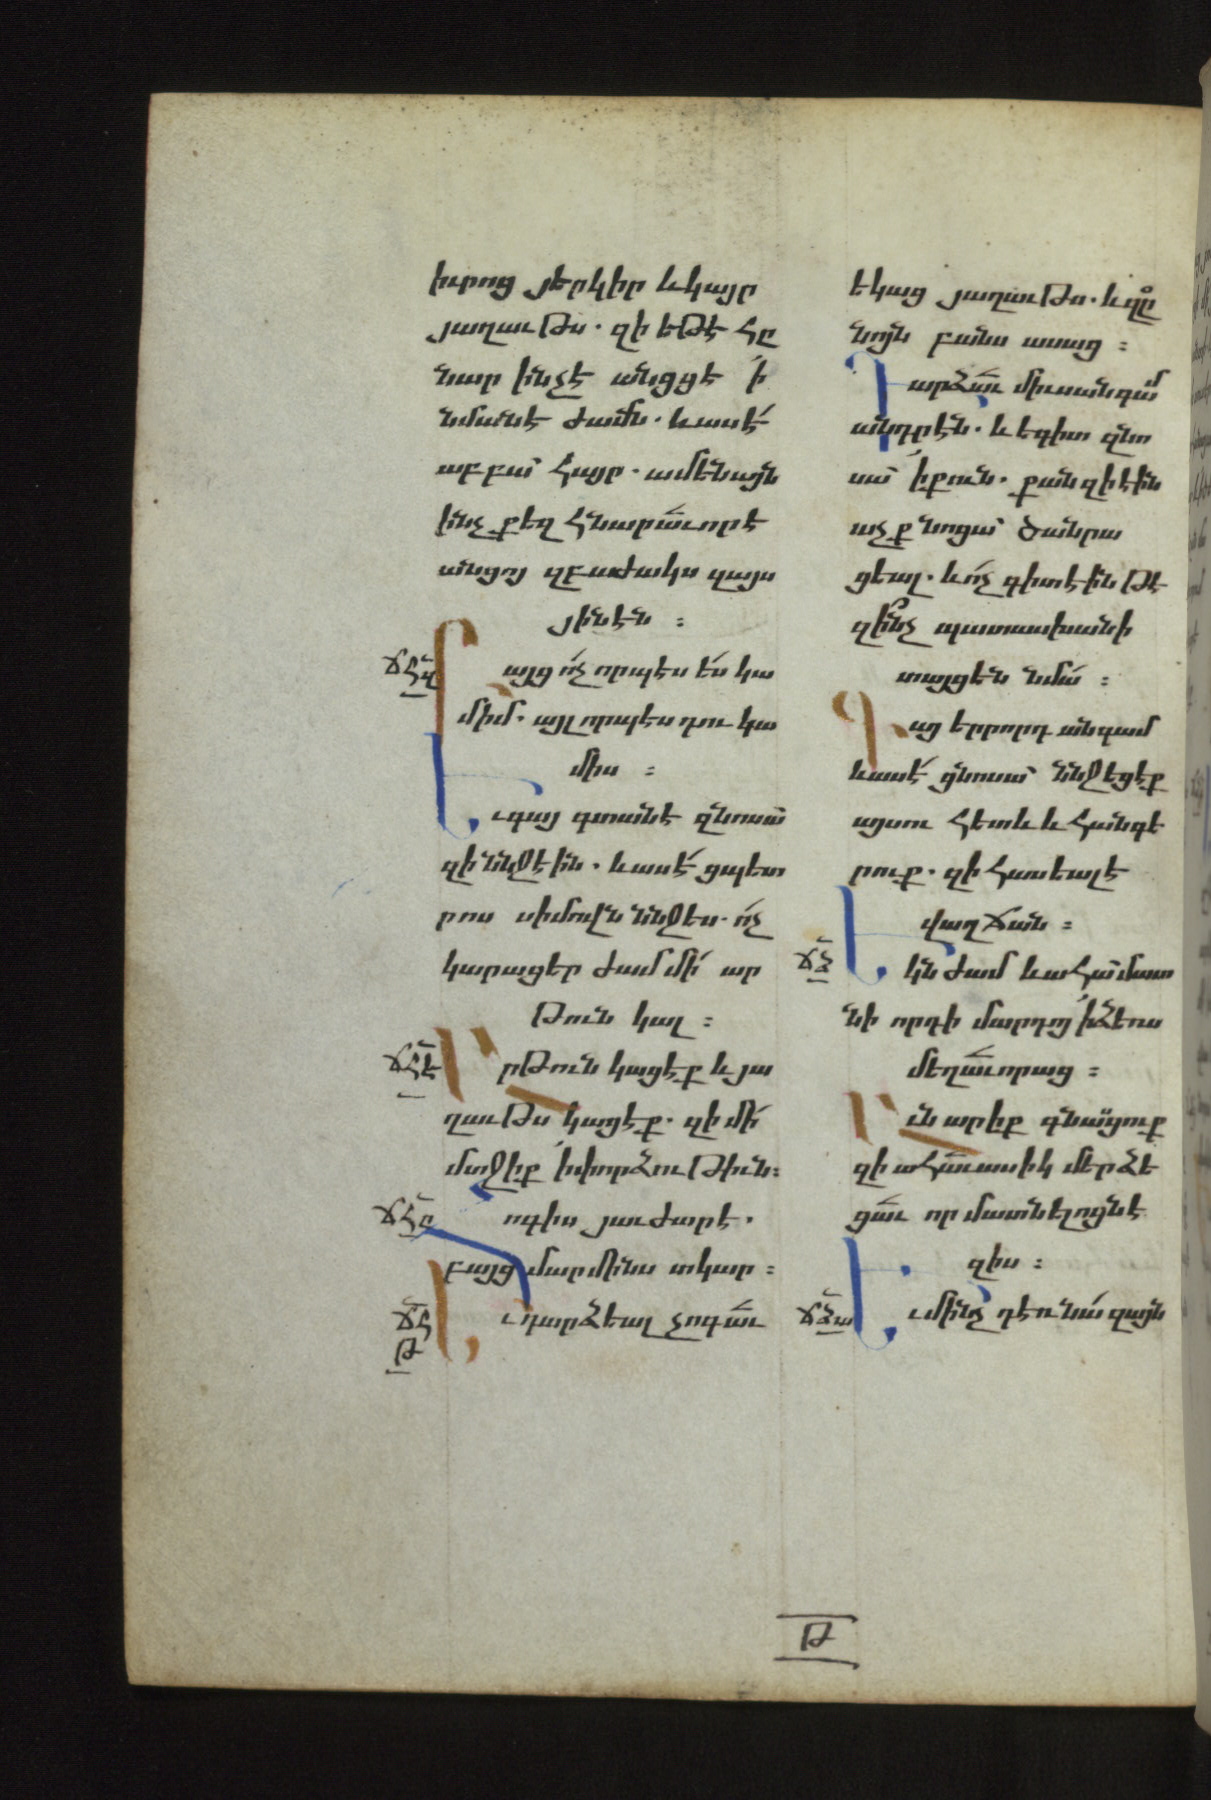 իւրոց յերկիր և կայր
յաղաւթս. զի եթէ հը
նար ինչ է անցցե ՛ի
նմանէ ժամն. և ասէ՛
աբբա՛ հայր. ամենայն
ինչ քեզ հնարաւոր է
անցոյ զբաժակս զայս
յինէն :
ՃՀԶ
Բայց ո՛չ որպէս ե՛ս կա
միմ. այլ որպէս դու կա
միս :
Եւ գայ գտանէ զնոսա՛
զի ննջէին. և ասէ՛ ցպետ
րոս սիմովն ննջես. ո՛չ
կարացեր ժամ մի՛ ար
թուն կալ :
ՃՀԷ
Արթուն կացէք և յա
ղաւթս կացէք. զի մի՛
մտջիք ՛ի փորձութիւն:
ՃՀԸ
Հոգիս յաւժար է.
բայց մարմինս տկար :
ՃՀ
Թ
Եւ դարձեալ չոգաւ
եկաց յաղաւթս. և զը
նոյն բանս ասաց :
Դարձաւ միւսանգամ
անդրէն. և եգիտ զնո
սա՛ ՛ի քուն. քանզի էին
աչք նոցա՛ ծանրա
ցեալ. և ո՛չ գիտէին թէ
զինչ պատասխանի
տայցեն նմա՛ :
Գայ երրորդ անգամ
և ասէ՛ ցնոսա՛ ննջեցէք
այսու հետև և հանգե
րուք. զի հասեալ է
վաղճան :
ՃՁ
Եկն ժամ և ահա՛ մատ
նի որդի մարդոյ ՛ի ձեռս
մեղաւորաց :
Աւն արիք գնասցուք
զի ահաւասիկ մերձե
ցաւ որ մատնելոցն է
զիս :
ՃՁԱ
Եւ մինչ դեռ նա՛ զայն
Թ